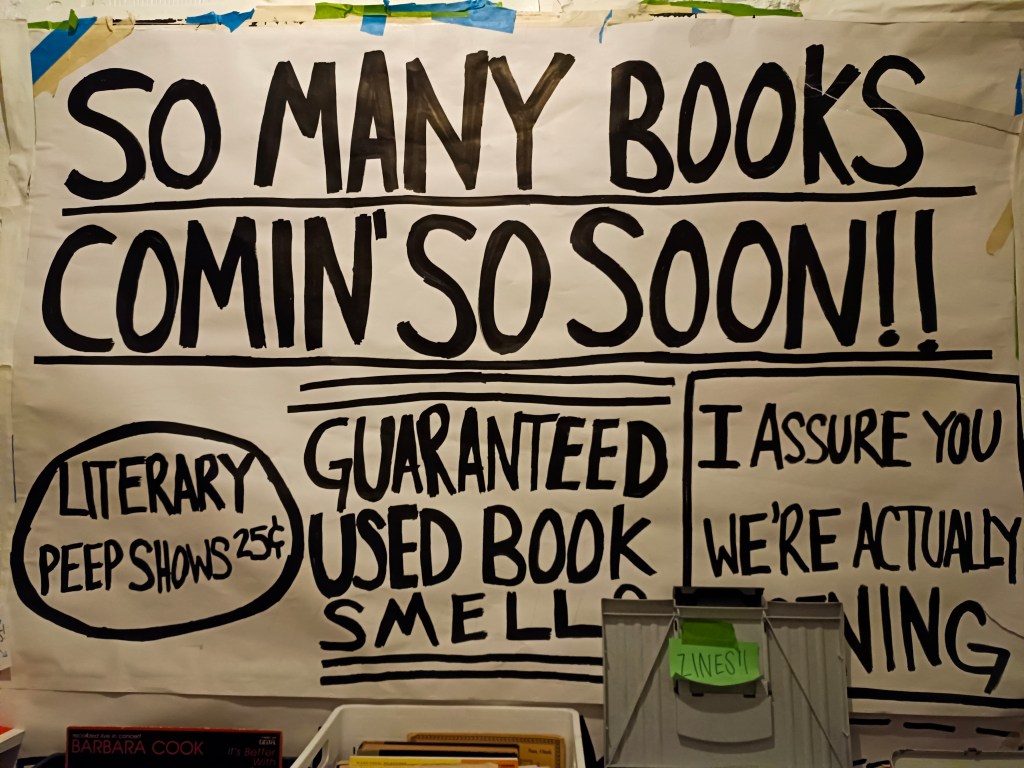 SO MANY BOOKS
COMIN' SO SOON!!
LITERARY
PEEP SHOWS 25¢
GUARANTEED
USED BOOK
SMELL
I ASSURE YOU
WE'RE ACTUALLY
ENING
ZINES!!
recorded live in concert
BARBARA COOK
It's Better
With